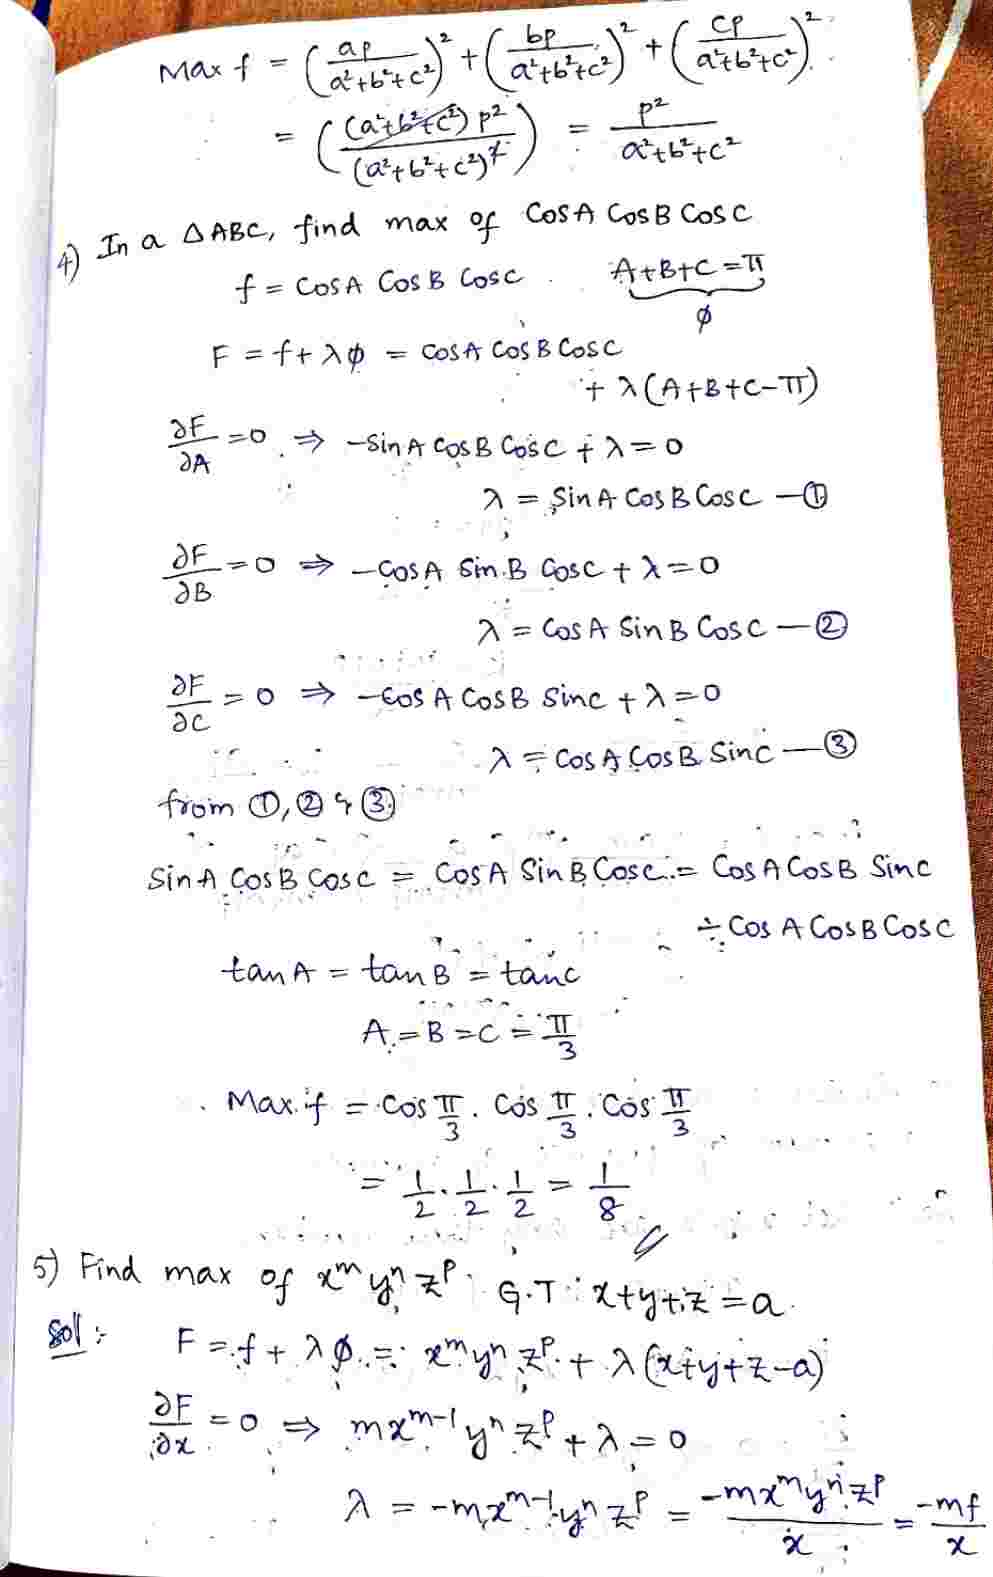 Max f = (ap/(a²+b²+c²))² + (bp/(a²+b²+c²))² + (cp/(a²+b²+c²))²
= ((a²+b²+c²) p²/(a²+b²+c²)²) = p²/(a²+b²+c²)
4) In a ΔABC, find max of Cos A Cos B Cos C
f = Cos A Cos B Cos C   A+B+C = π
ϕ
F = f + λϕ = Cos A Cos B Cos C
+ λ(A+B+C-π)
∂F/∂A = 0 ⇒ -Sin A Cos B Cos C + λ = 0
λ = Sin A Cos B Cos C — ①
∂F/∂B = 0 ⇒ -Cos A Sin B Cos C + λ = 0
λ = Cos A Sin B Cos C — ②
∂F/∂C = 0 ⇒ -Cos A Cos B Sin C + λ = 0
λ = Cos A Cos B Sin C — ③
from ①, ② & ③
Sin A Cos B Cos C = Cos A Sin B Cos C = Cos A Cos B Sin C
÷ Cos A Cos B Cos C
tan A = tan B = tan C
A = B = C = π/3
Max f = Cos π/3 . Cos π/3 . Cos π/3
= 1/2 . 1/2 . 1/2 = 1/8
5) Find max of xᵐ yⁿ zᵖ G.T x+y+z = a
Sol :-
F = f + λϕ = xᵐ yⁿ zᵖ + λ(x+y+z-a)
∂F/∂x = 0 ⇒ mxᵐ⁻¹ yⁿ zᵖ + λ = 0
λ = -mxᵐ⁻¹ yⁿ zᵖ = -mxᵐ yⁿ zᵖ/x = -mf/x